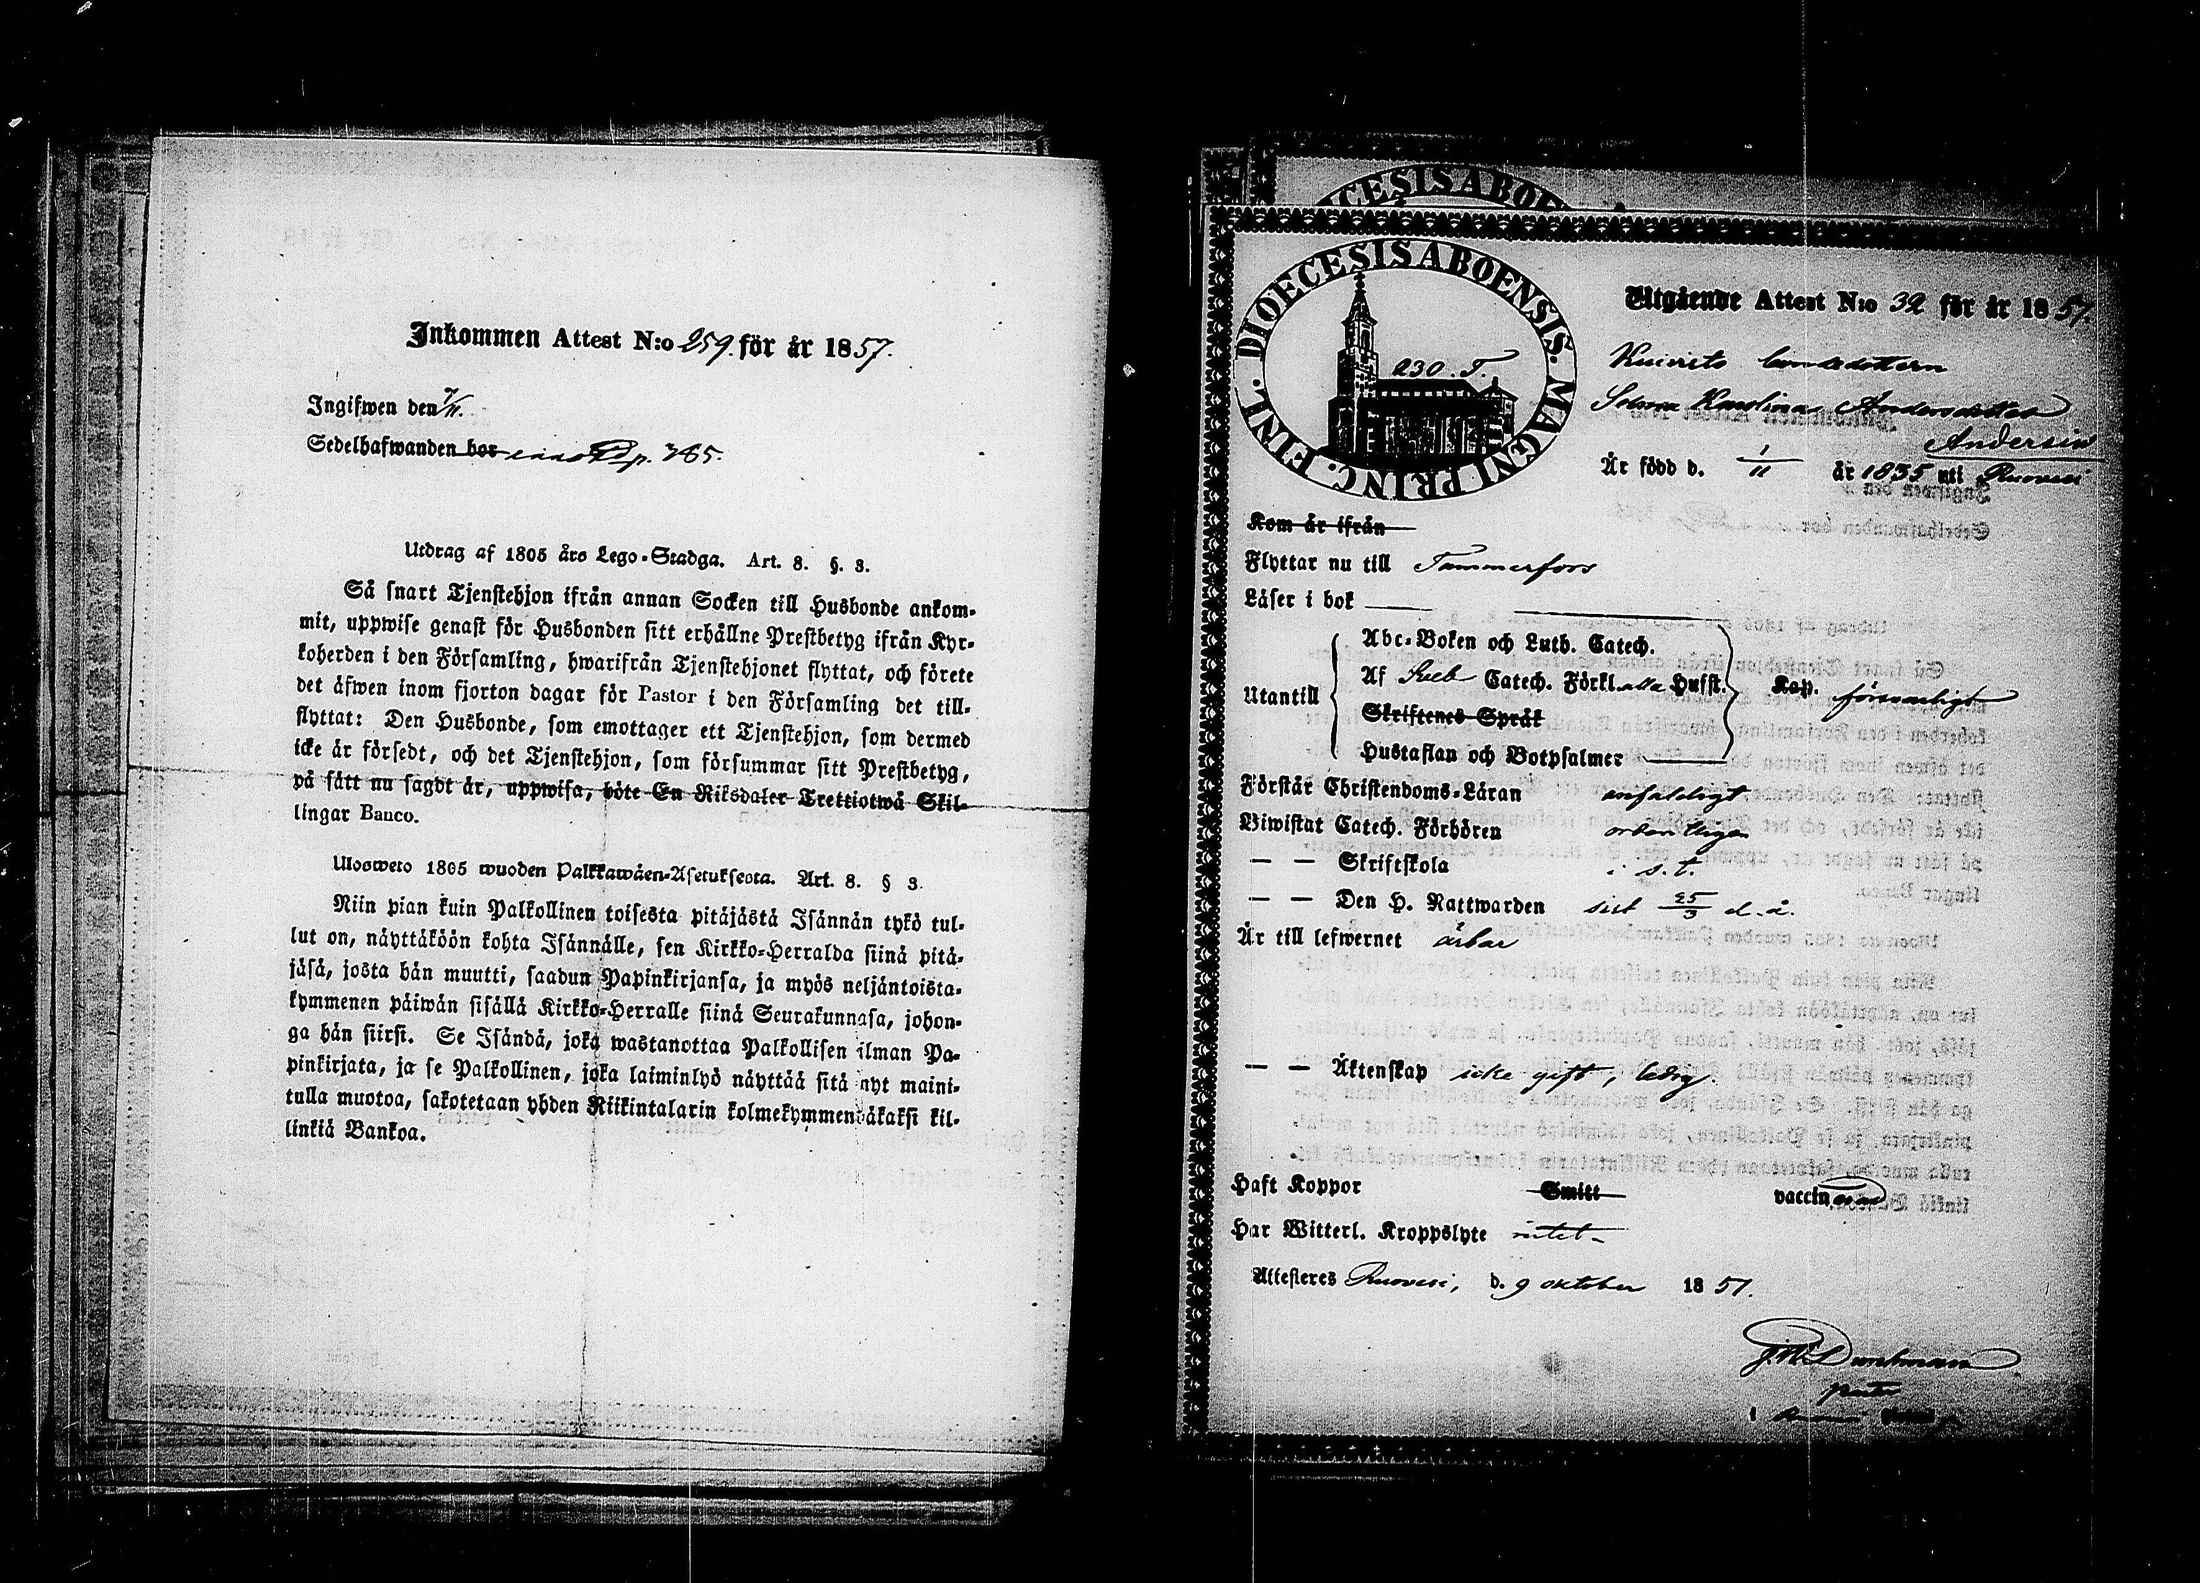 Inkommen Attest N:o 259. för år 1857.
Ingifwen den 7/11.
Sedelhafwanden bor p. 765.
Utdrag af 1805 års Lego-Stadga. Art. 8. §. 3.
Så snart Tjenstehjon ifrån annan Socken till Husbonde ankom-
mit, uppwise genast för Husbonden sitt erhållne Prestbetyg ifrån Kyr-
koherden i den Församling, hwarifrån Tjenstehjonet flyttat, och förete
det äfwen inom fjorton dagar för Pastor i den Församling det till-
flyttat: Den Husbonde, som emottager ett Tjenstehjon, som dermed
icke är försedt, och det Tjenstehjon, som försummar sitt Prestbetyg,
på sätt nu sagdt är, uppwisa, böte En Riksdaler Trettiotwå Skil-
lingar Banco.
Ulosweto 1805 wuoden Palkkawäen-Asetuksesta. Art. 8. § 3.
Niin pian kuin Palkollinen toisesta pitäjästä Isännän tykö tul-
lut on, näyttäköön kohta Isännälle, sen Kirkko-Herralda siinä pitä-
jäsä, josta hän muutti, saadun Papinkirjansa, ja myös neljäntoista-
kymmenen päiwän sisällä Kirkko-Herralle siinä Seurakunnasa, johon-
ga hän siirsi. Se Isändä, joka wastanottaa Palkollisen ilman Pa-
pinkirjata, ja se Palkollinen, joka laiminlyö näyttää sitä nyt maini-
tulla muotoa, sakotetaan yhden Riikintalarin kolmekymmendäkaksi kil-
linkiä Bankoa.
DIOECESIS ABOENSIS
DIOECESIS ABOENSIS. MAGNI PRINC. FINL.
230. T.
Utgående Attest N:o 32 för år 1857.
Karolina Andersdotter
Andersin
Är född d. 1/11 år 1835 uti Ruovesi
Kom år ifrån
Flyttar nu till Tammerfors
Läser i bok
Utantill
Abc-Boken och Luth. Catech.
Af Sveb Catech. Förkl. alla Hufst. Kap. försvarligt
Skriftenes Språk
Hustaflan och Botpsalmer
Förstår Christendoms-Läran enfaldigt
Biwistat Catech. Förhören ordentligen
— — Skriftskola i s. t.
— — Den H. Nattwarden sist 25/3 d. å.
Är till lefwernet ärbar
— — Äktenskap icke gift, ledig.
Haft Koppor Smitt vaccinerad
Har Witterl. Kroppslyte intet
Attesteres Ruovesi, d. 9 oktober 1857.